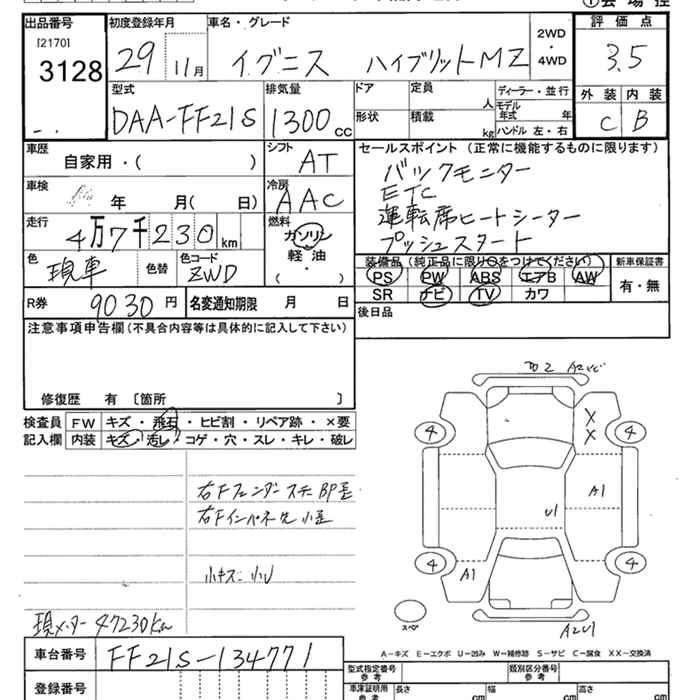 出品番号 初度登録年月 車名・グレード 評価点
[2170]
3128 29 11月 イグニス ハイブリットMZ 2WD・4WD 3.5
型式 排気量 ドア 定員 人 ディーラー・並行 外装 内装
DAA-FF21S 1300cc 形状 積載 kg モデル年式 年 ハンドル 左・右 C B
車歴 自家用・( ) シフト AT セールスポイント (正常に機能するものに限ります)
バックモニター
車検 年 月( 日) 冷房 AAC ETC
運転席ヒートシーター
走行 4万7千230km 燃料 ガソリン 軽油・( ) プッシュスタート
色 現車 色替 色コード ZWD 装備品(純正品に限り○をつけてください) 新車保証書
PS PW ABS エアB AW 有・無
R券 9030円 名変通知期限 月 日 SR ナビ TV カワ
注意事項申告欄(不具合内容等は具体的に記入して下さい) 後日品
修復歴 有 〔箇所 〕
検査員記入欄 FW キズ・飛石・ヒビ割・リペア跡・×要
内装 キズ・汚レ・コゲ・穴・スレ・キレ・破レ
A2
X
X
4 4
A1
U1
4 4
A1
右Fフェンダーステー BP歪
右Fインパネ先小歪
小キズ 小U
現メーター 47230km
スペア
A2U1
A-キズ E-エクボ U-凹み W-補修跡 S-サビ C-腐食 XX-交換済
車台番号 FF21S-134771
型式指定番号 参考 類別区分番号 参考
登録番号 車庫証明用 参考 長さ cm 幅 cm 高さ cm